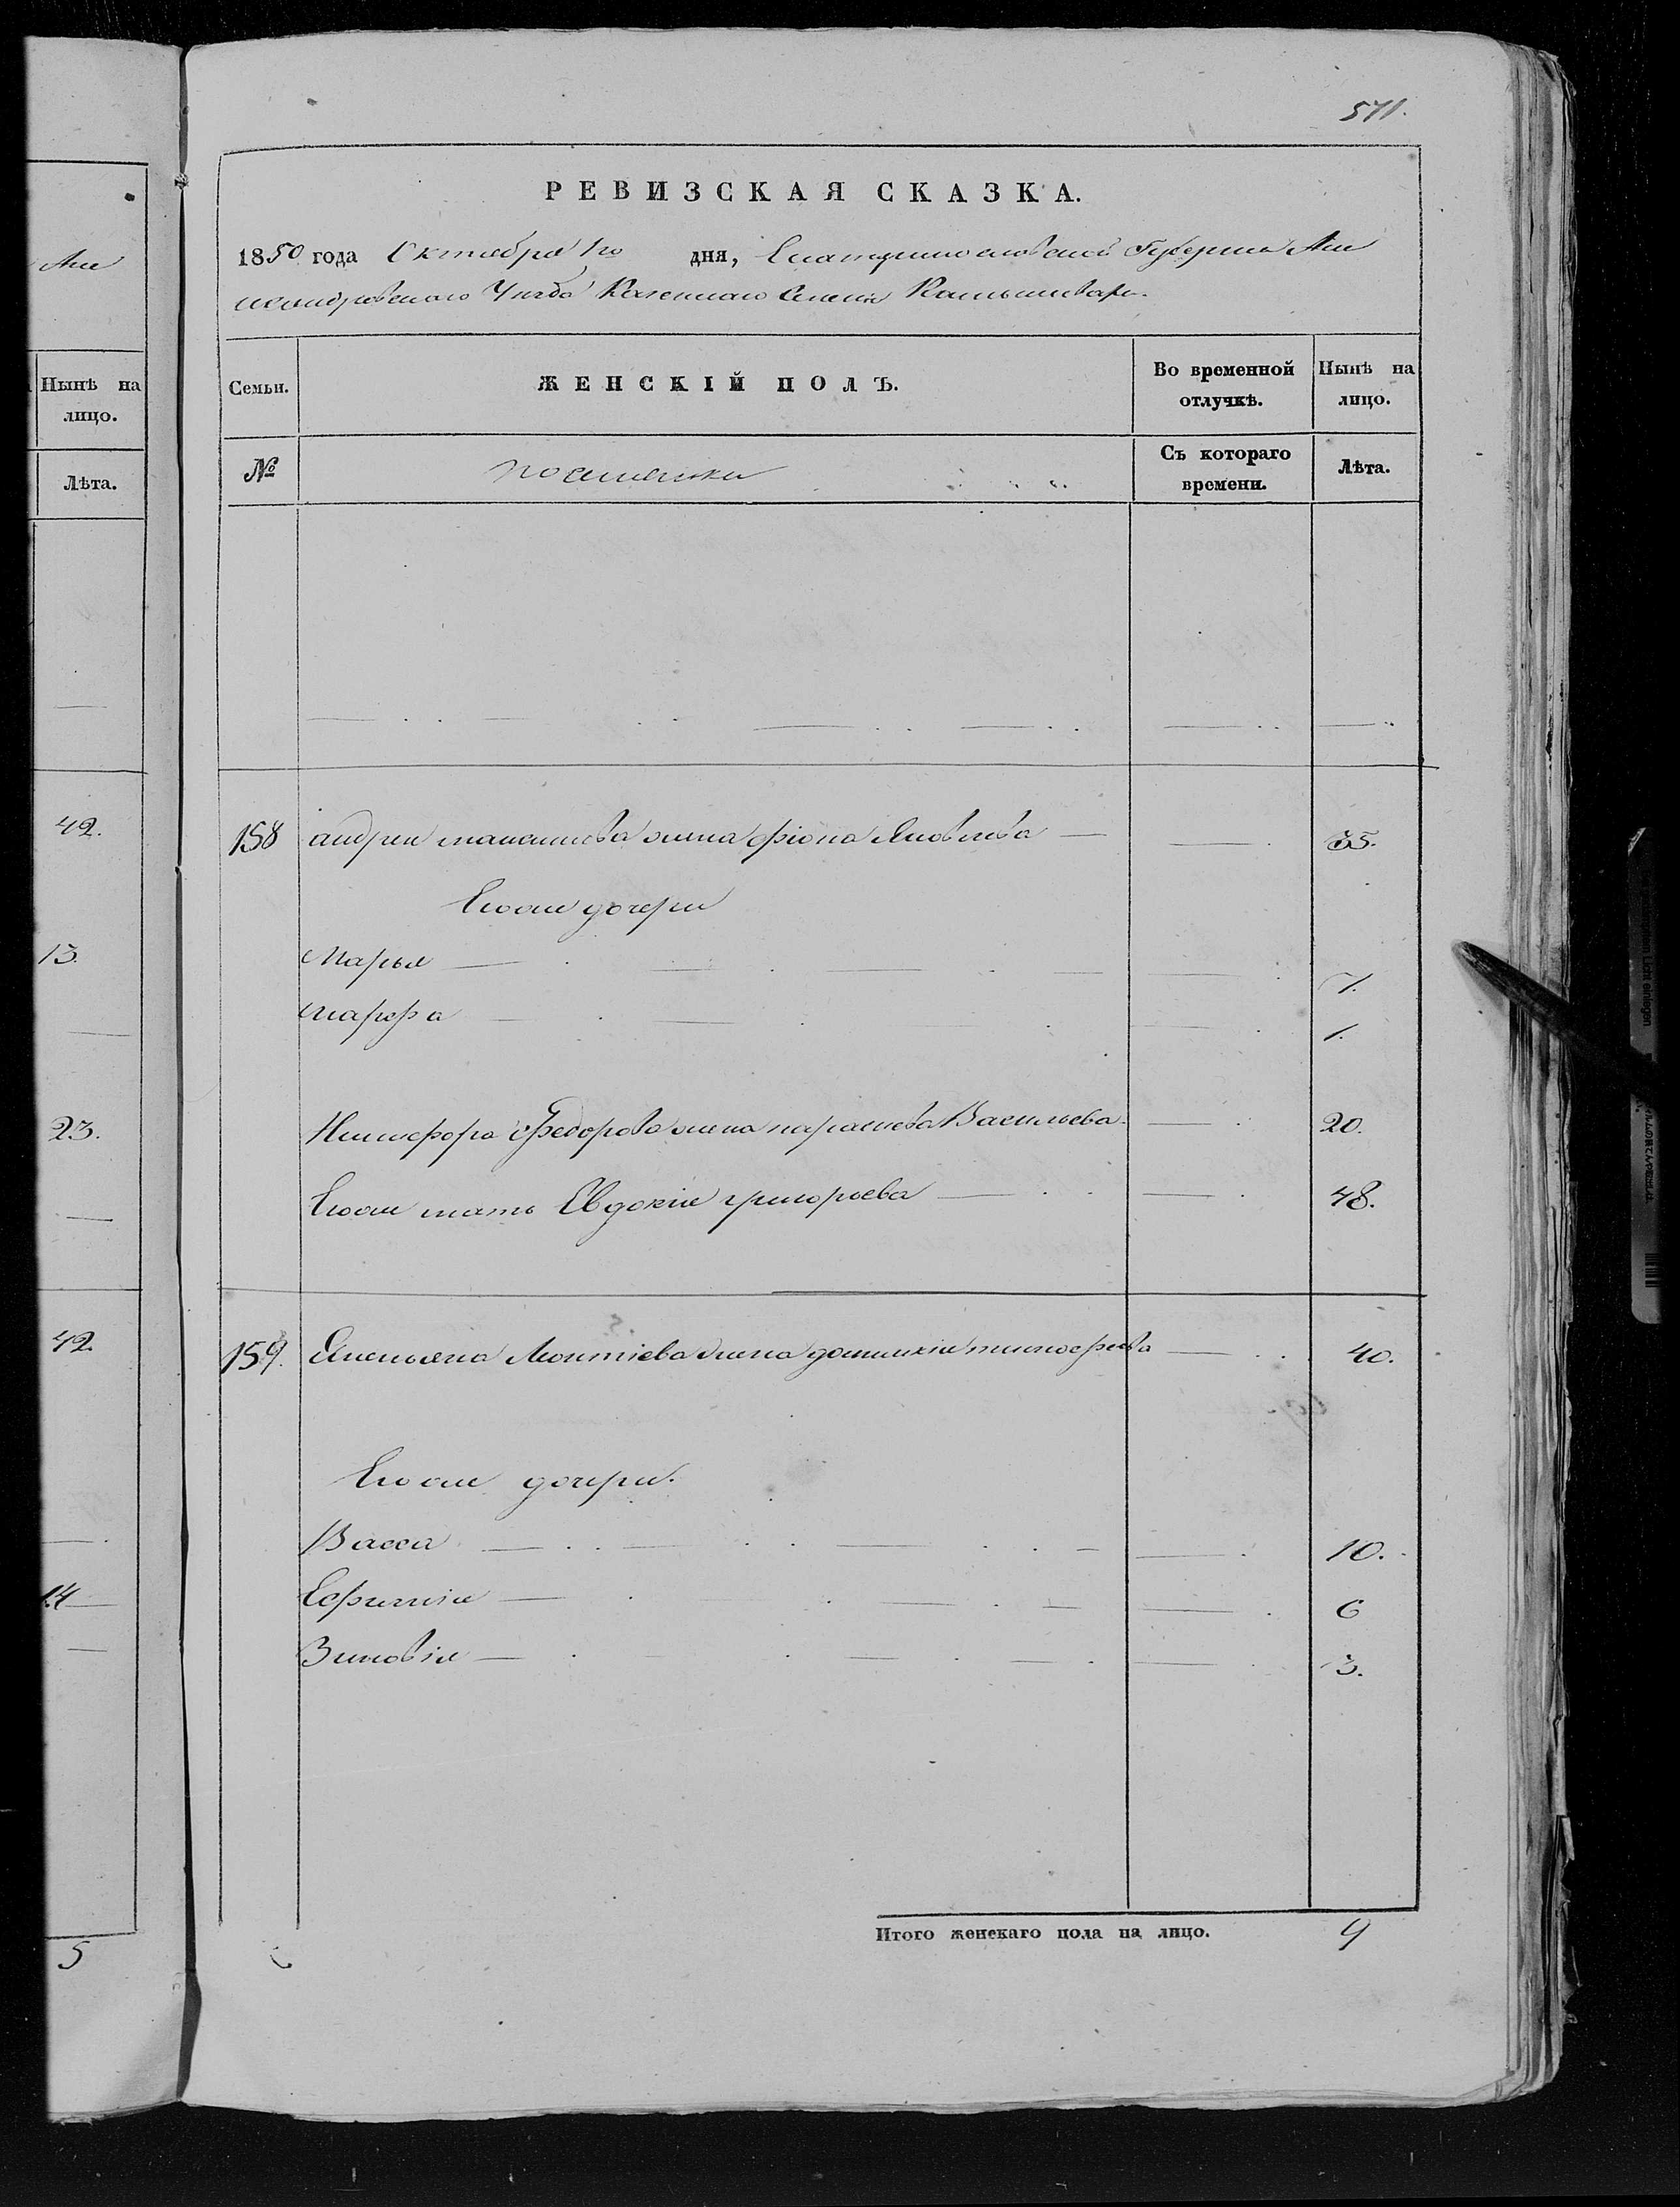 571.
РЕВИЗСКАЯ СКАЗКА.
1850 года Октября 1го дня, Екатеринославской Губернiи Але
ксандровскаго Уѣзда Казеннаго Селенiя Камышевахи.
Семьи. ЖЕНСКIЙ ПОЛЪ. Во временной отлучкѣ. Нынѣ на лицо.
№ Съ котораго времени. Лѣта.
158 андрея жена Яковлева 35.
Егоже дочери
Марья 7.
марфа 1.
Никифора Федорова жена параскева Васильева 20.
Егоже мать Евдокiя григорьева 48.
159. Емельяна Леонтiева жена домникiя тимофеева 40.
Егоже дочери.
Васса 10.
Ефимiя 6
Зиновiя 3.
Итого женскаго пола на лицо. 9
Але
Нынѣ на
лицо.
Лѣта.
42.
13.
23.
42.
14
5